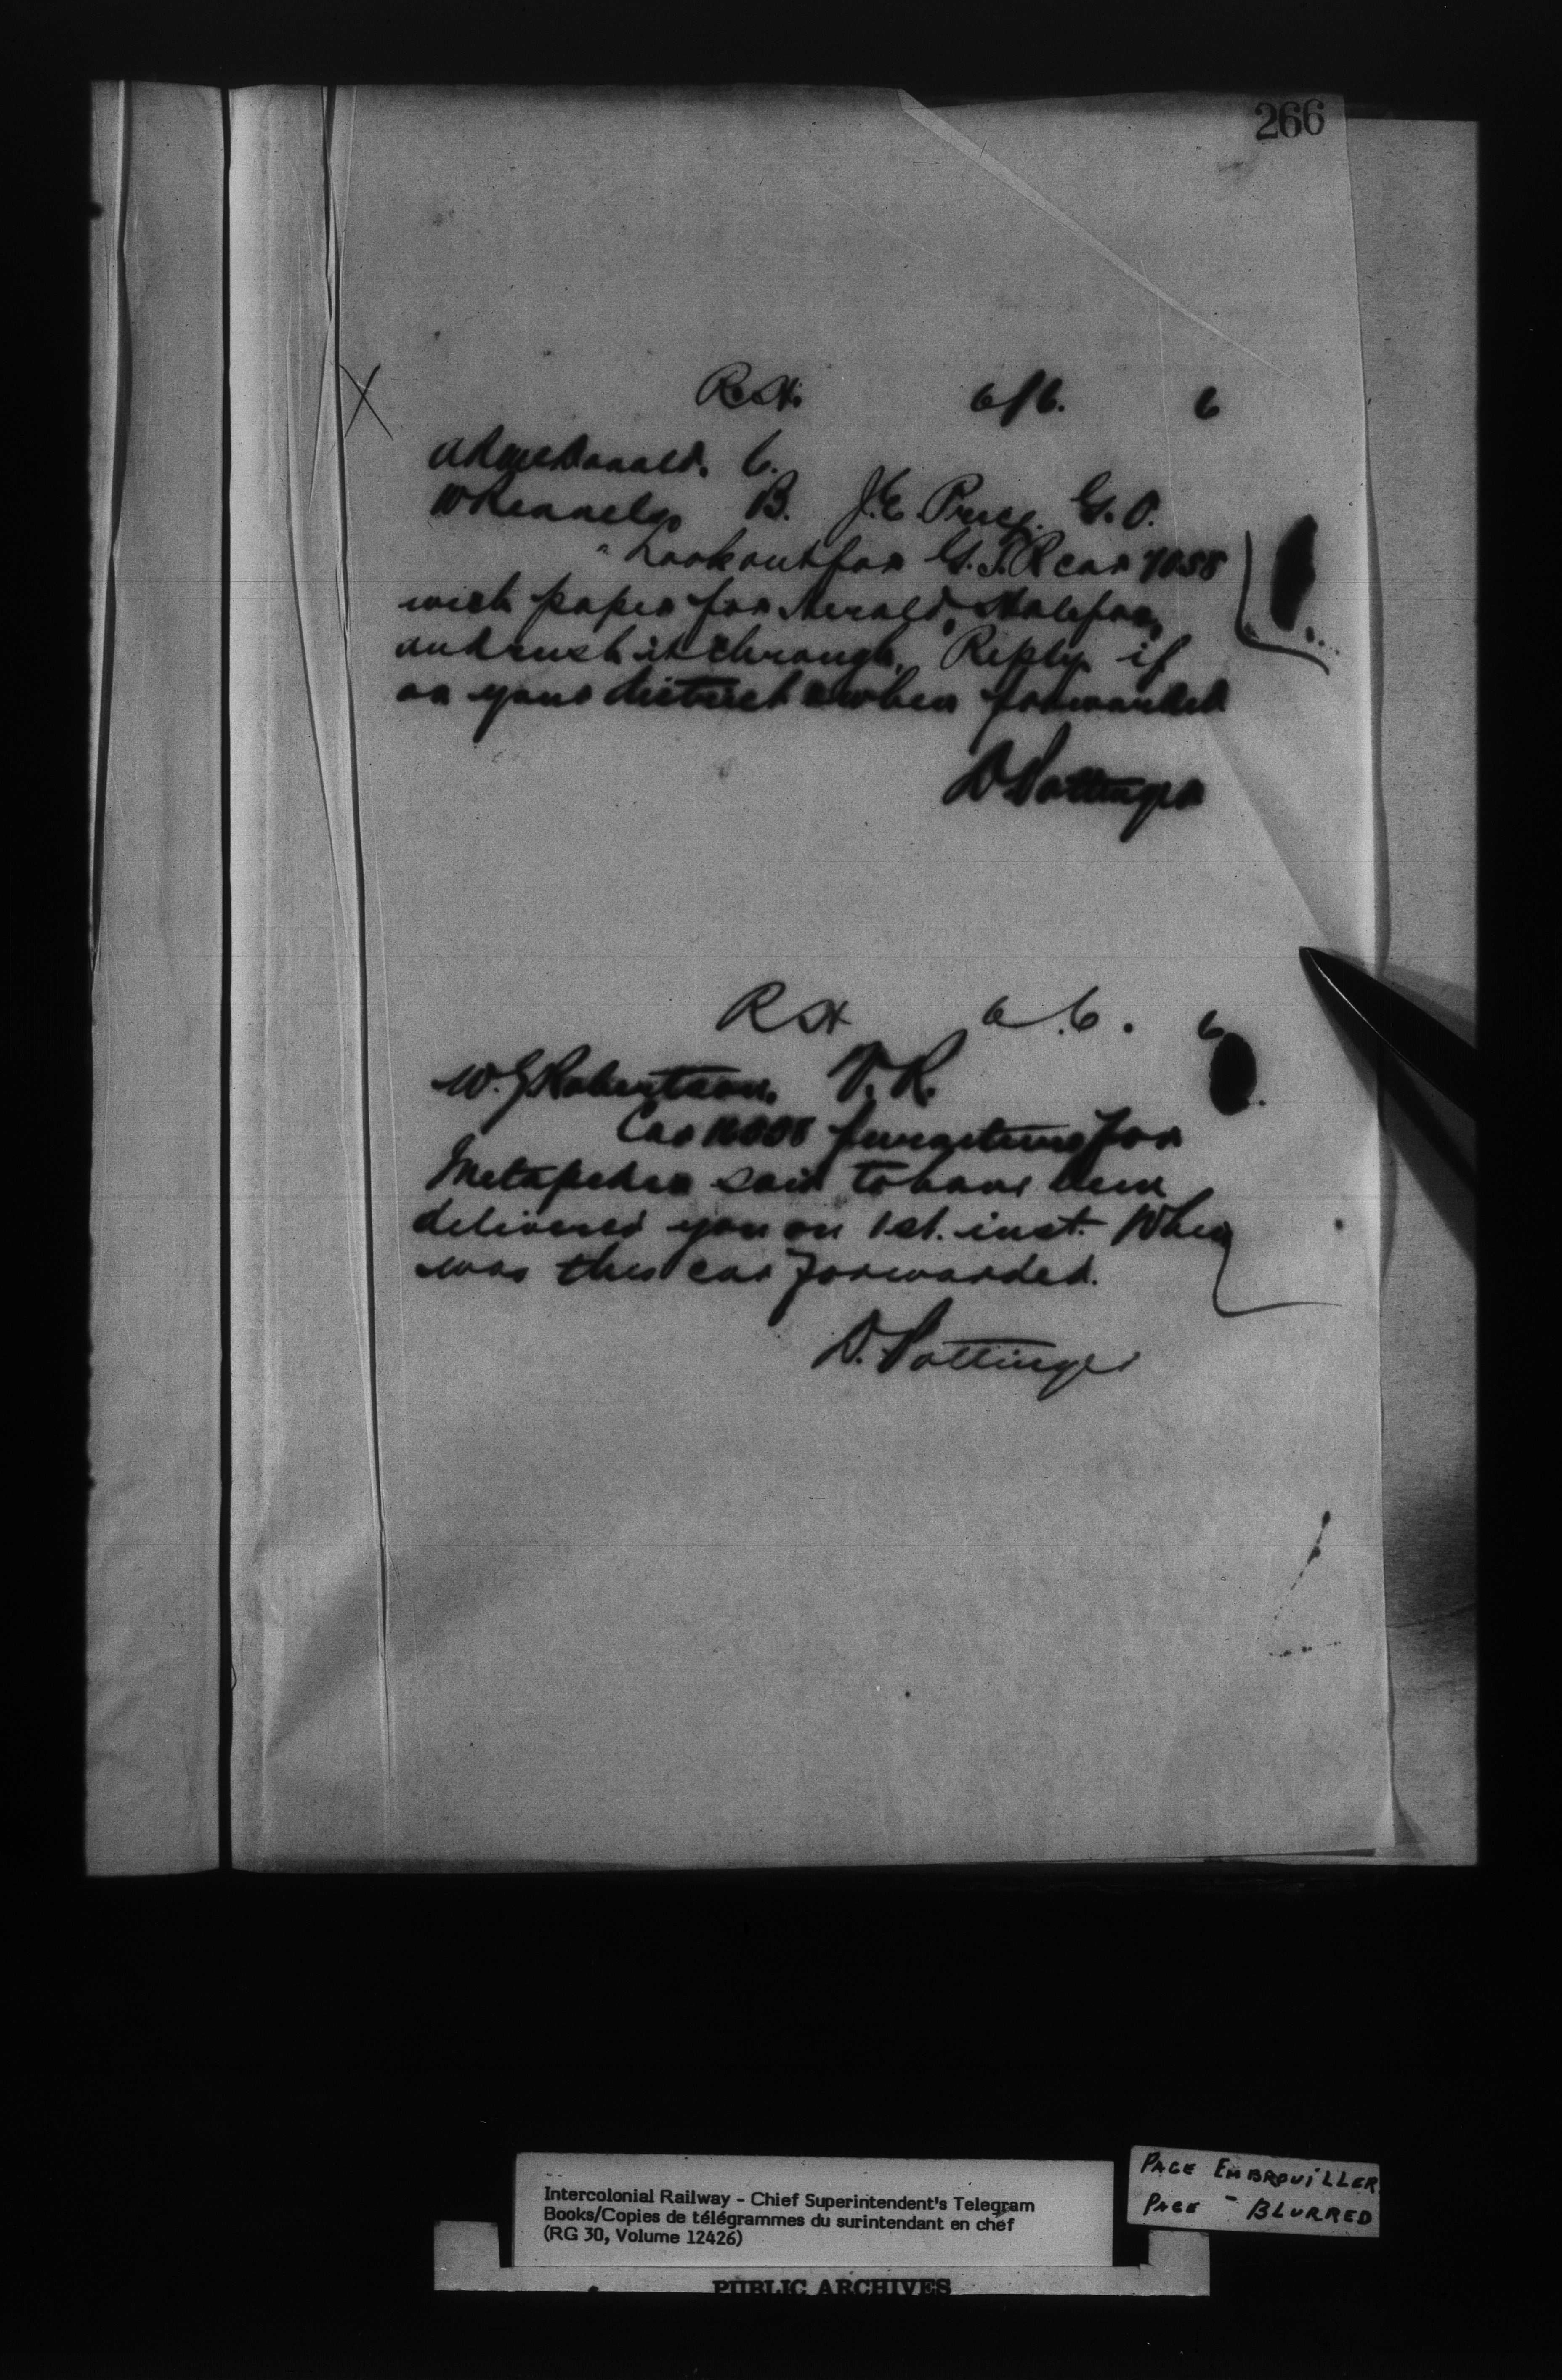 266
R.H. 6/6. 6
A McDonald. C.
W Rennels B. J.E. Price. G.O.
Look out for G.T.R car 7058
with paper for Herald, Halifax,
and rush it through. Reply if
on your district & when forwarded
D Pottinger
R H 6 6. 6
W. G Robertson. T.R.
Car 16008 furniture for
Metapedia said to have been
delivered you on 1st. inst. When
was this car forwarded.
D. Pottinger
Intercolonial Railway - Chief Superintendent's Telegram
Books/Copies de télégrammes du surintendant en chef
(RG 30, Volume 12426)
PAGE EMBROUILLER.
PAGE - BLURRED
PUBLIC ARCHIVES